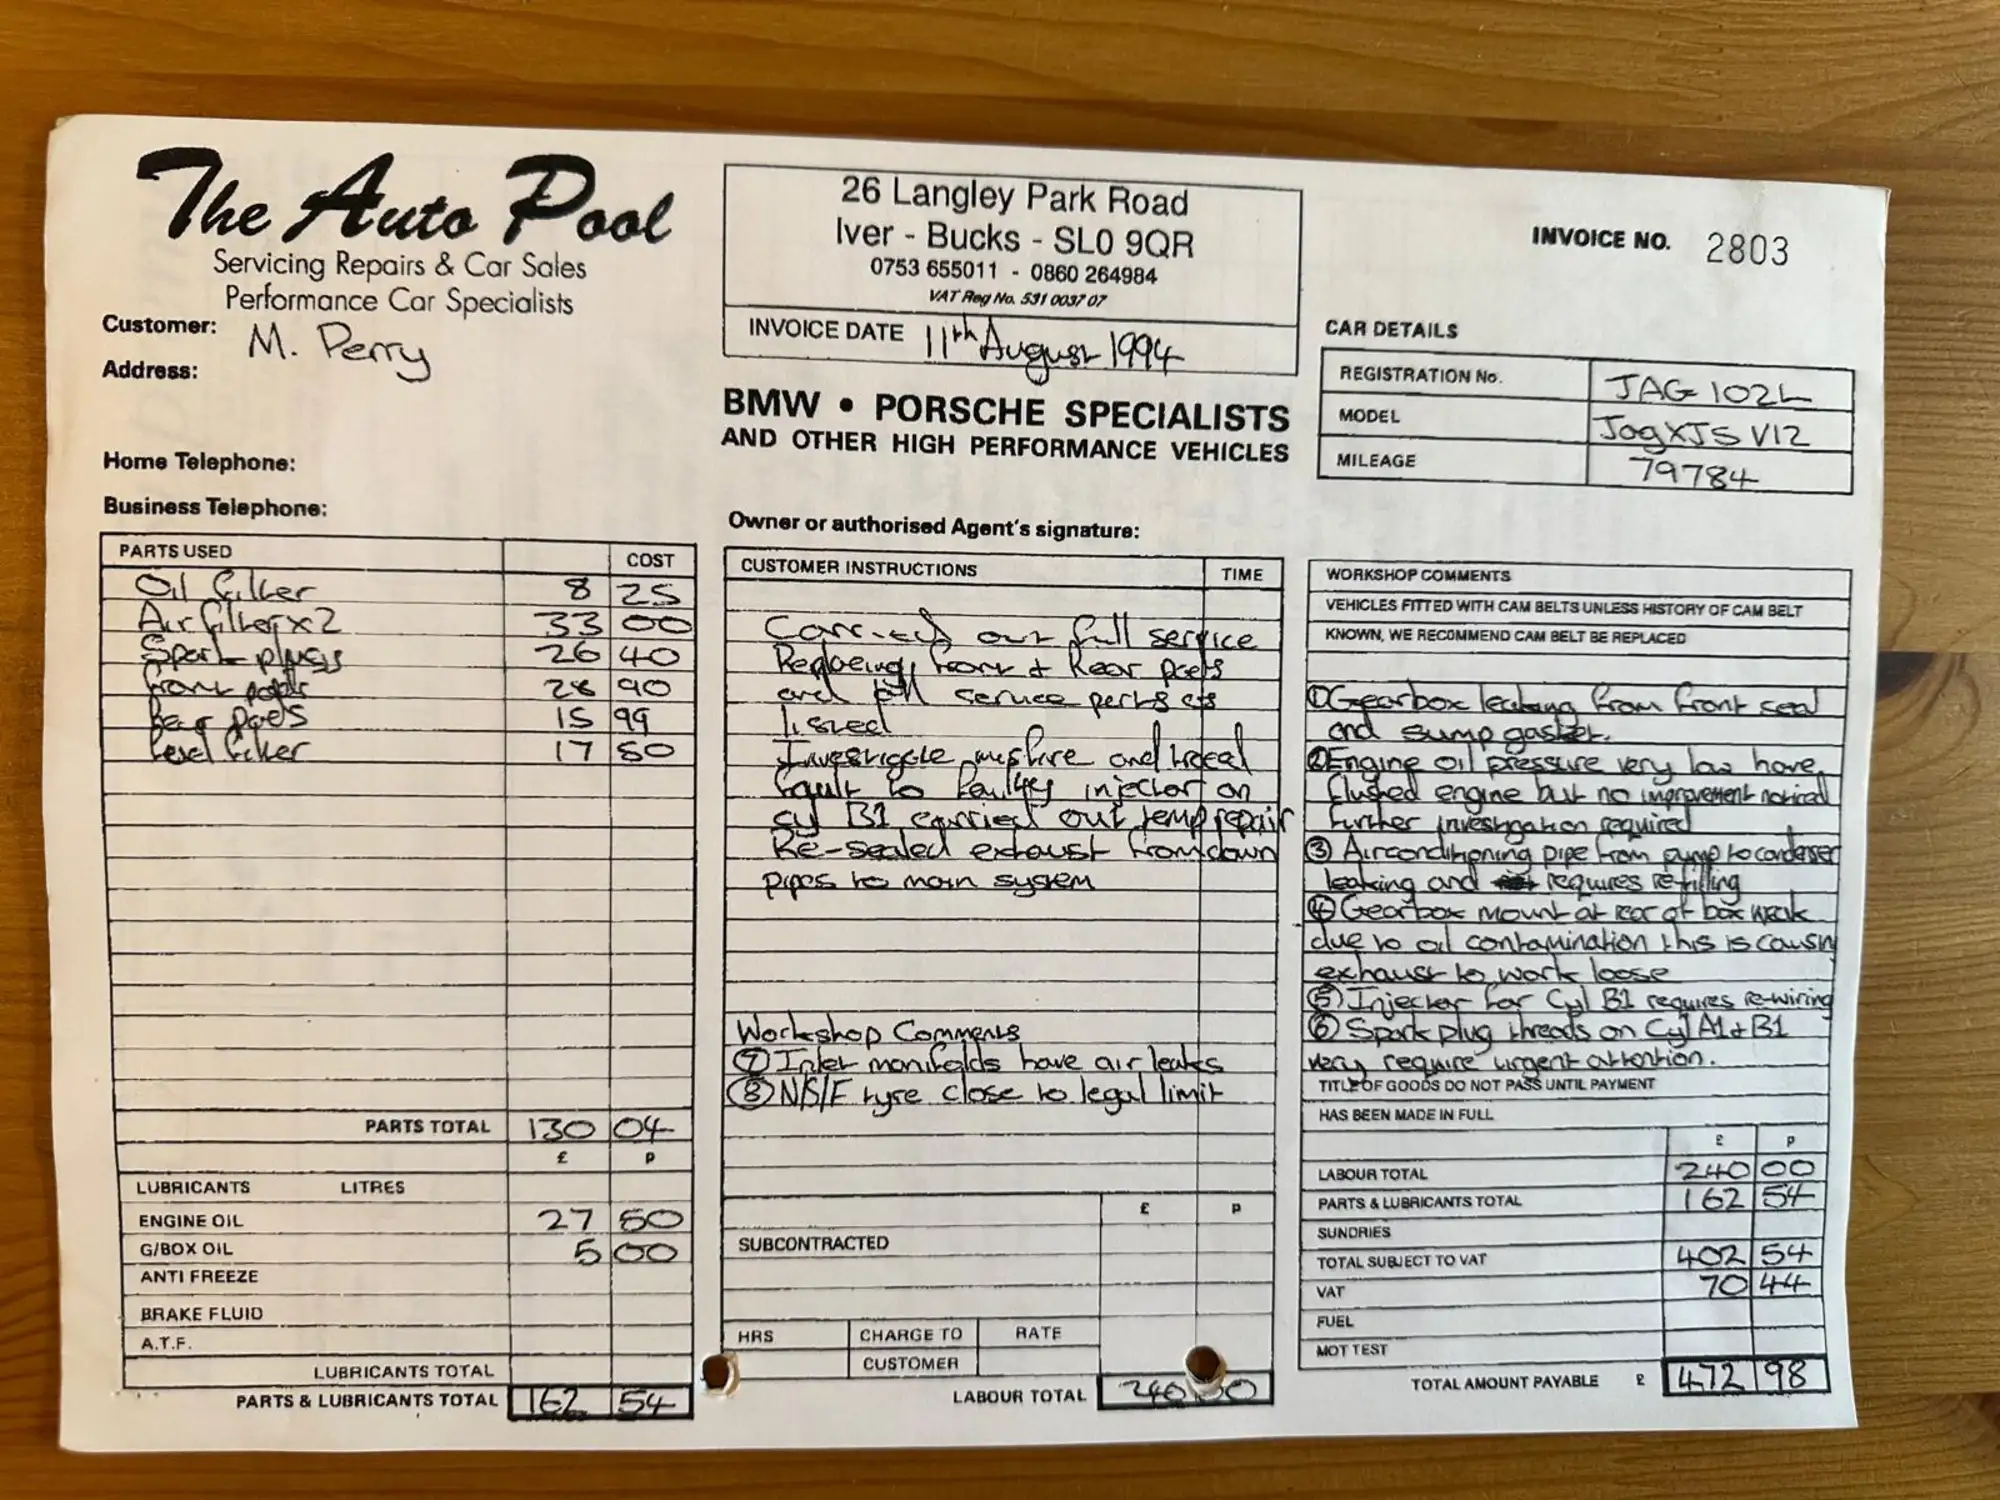 The Auto Pool
Servicing Repairs & Car Sales
Performance Car Specialists
Customer: M. Perry
Address:
Home Telephone:
Business Telephone:
26 Langley Park Road
Iver - Bucks - SL0 9QR
0753 655011 - 0860 264984
VAT Reg No. 531 0037 07
INVOICE DATE 11th August 1994
BMW • PORSCHE SPECIALISTS
AND OTHER HIGH PERFORMANCE VEHICLES
Owner or authorised Agent's signature:
INVOICE NO. 2803
CAR DETAILS
REGISTRATION No. JAG 102L
MODEL Jag XJS V12
MILEAGE 79784
PARTS USED COST
Oil filter 8 25
Air filter x 2 33 00
Spark plugs 26 40
front pads 28 90
Rear pads 15 99
Fuel filter 17 50
PARTS TOTAL 130 04
£ p
LUBRICANTS LITRES
ENGINE OIL 27 50
G/BOX OIL 5 00
ANTI FREEZE
BRAKE FLUID
A.T.F.
LUBRICANTS TOTAL
PARTS & LUBRICANTS TOTAL 162 54
CUSTOMER INSTRUCTIONS TIME
Carried out full service
Replacing front + Rear pads
and all service parts as
listed
Investigate misfire and traced
fault to faulty injector on
cyl B1 carried out temp repair
Re-sealed exhaust from down
pipes to main system
Workshop Comments
⑦ Inlet manifolds have air leaks
⑧ N/S/F tyre close to legal limit
£ p
SUBCONTRACTED
HRS CHARGE TO RATE
CUSTOMER
LABOUR TOTAL 240 00
WORKSHOP COMMENTS
VEHICLES FITTED WITH CAM BELTS UNLESS HISTORY OF CAM BELT
KNOWN, WE RECOMMEND CAM BELT BE REPLACED
① Gearbox leaking from front seal
and sump gasket.
② Engine oil pressure very low have
flushed engine but no improvement noticed
further investigation required
③ Airconditioning pipe from pump to condenser
leaking and requires re-filling
④ Gearbox mount at rear of box weak
due to oil contamination this is causing
exhaust to work loose
⑤ Injector for Cyl B1 requires re-wiring
⑥ Spark plug threads on Cyl A1 + B1
very require urgent attention.
TITLE OF GOODS DO NOT PASS UNTIL PAYMENT
HAS BEEN MADE IN FULL
£ p
LABOUR TOTAL 240 00
PARTS & LUBRICANTS TOTAL 162 54
SUNDRIES
TOTAL SUBJECT TO VAT 402 54
VAT 70 44
FUEL
MOT TEST
TOTAL AMOUNT PAYABLE £ 472 98